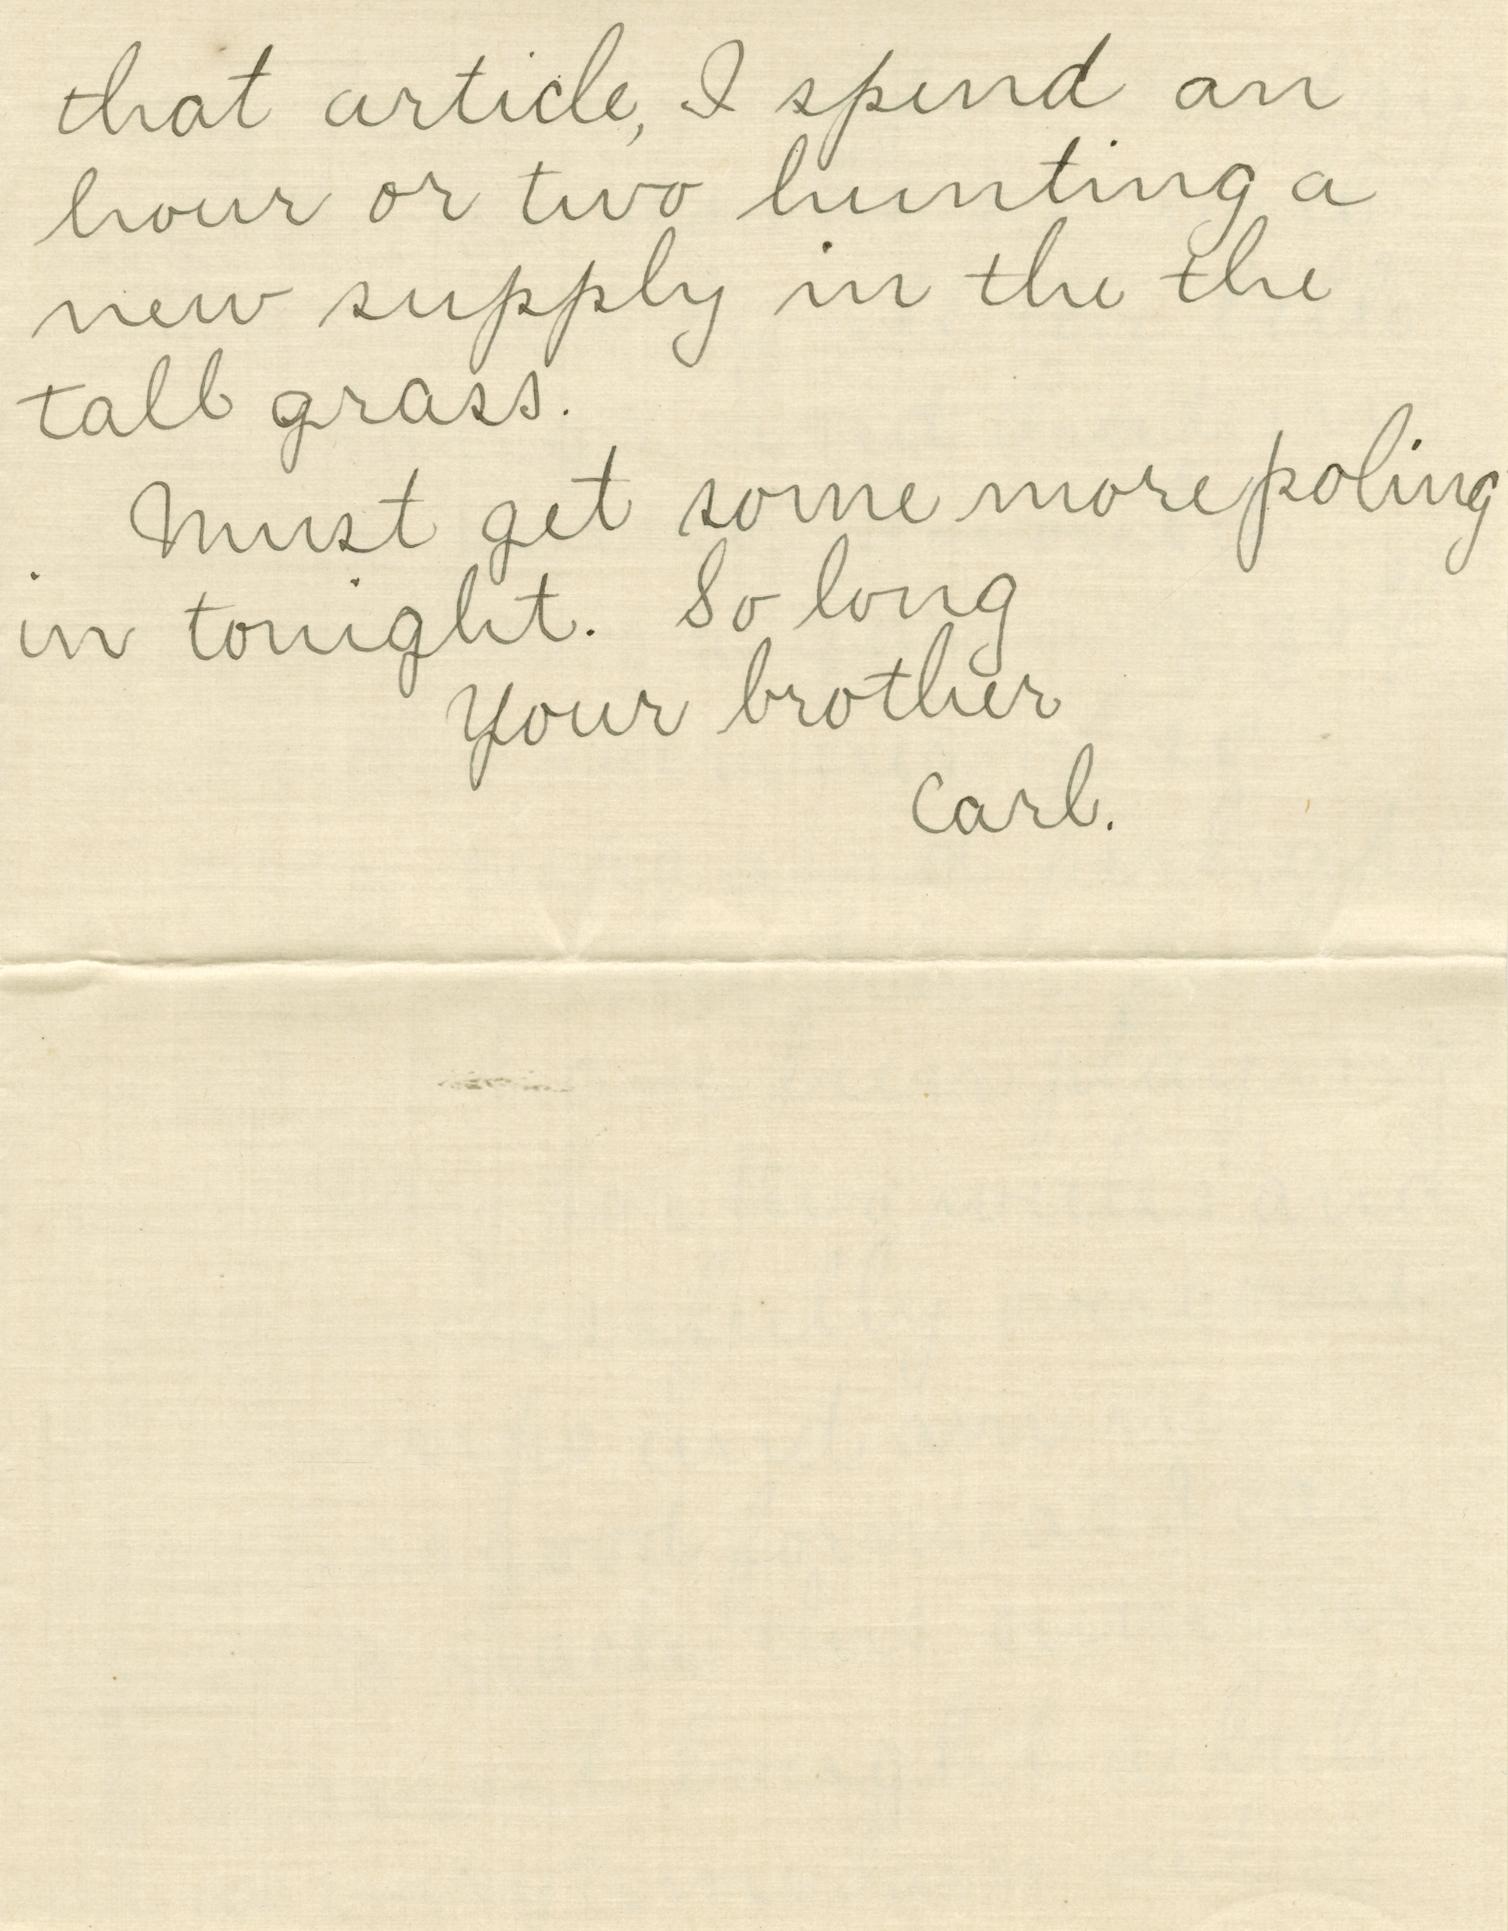 that article, I spend an
hour or two hunting a
new supply in the the
tall grass.
Must get some more poling
in tonight. So long
Your brother
Carl.